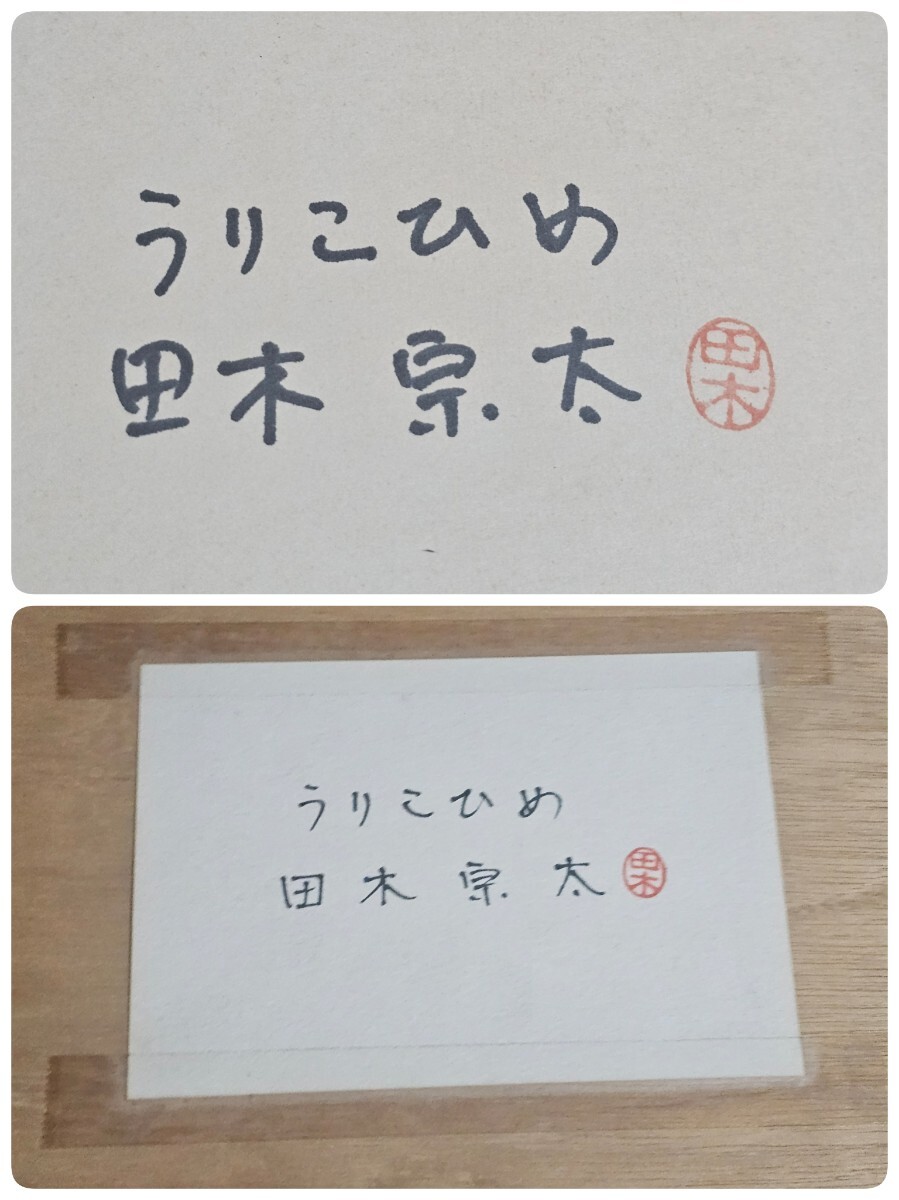 うりこひめ
田木 宗太 田木
うりこひめ
田木 宗太 田木